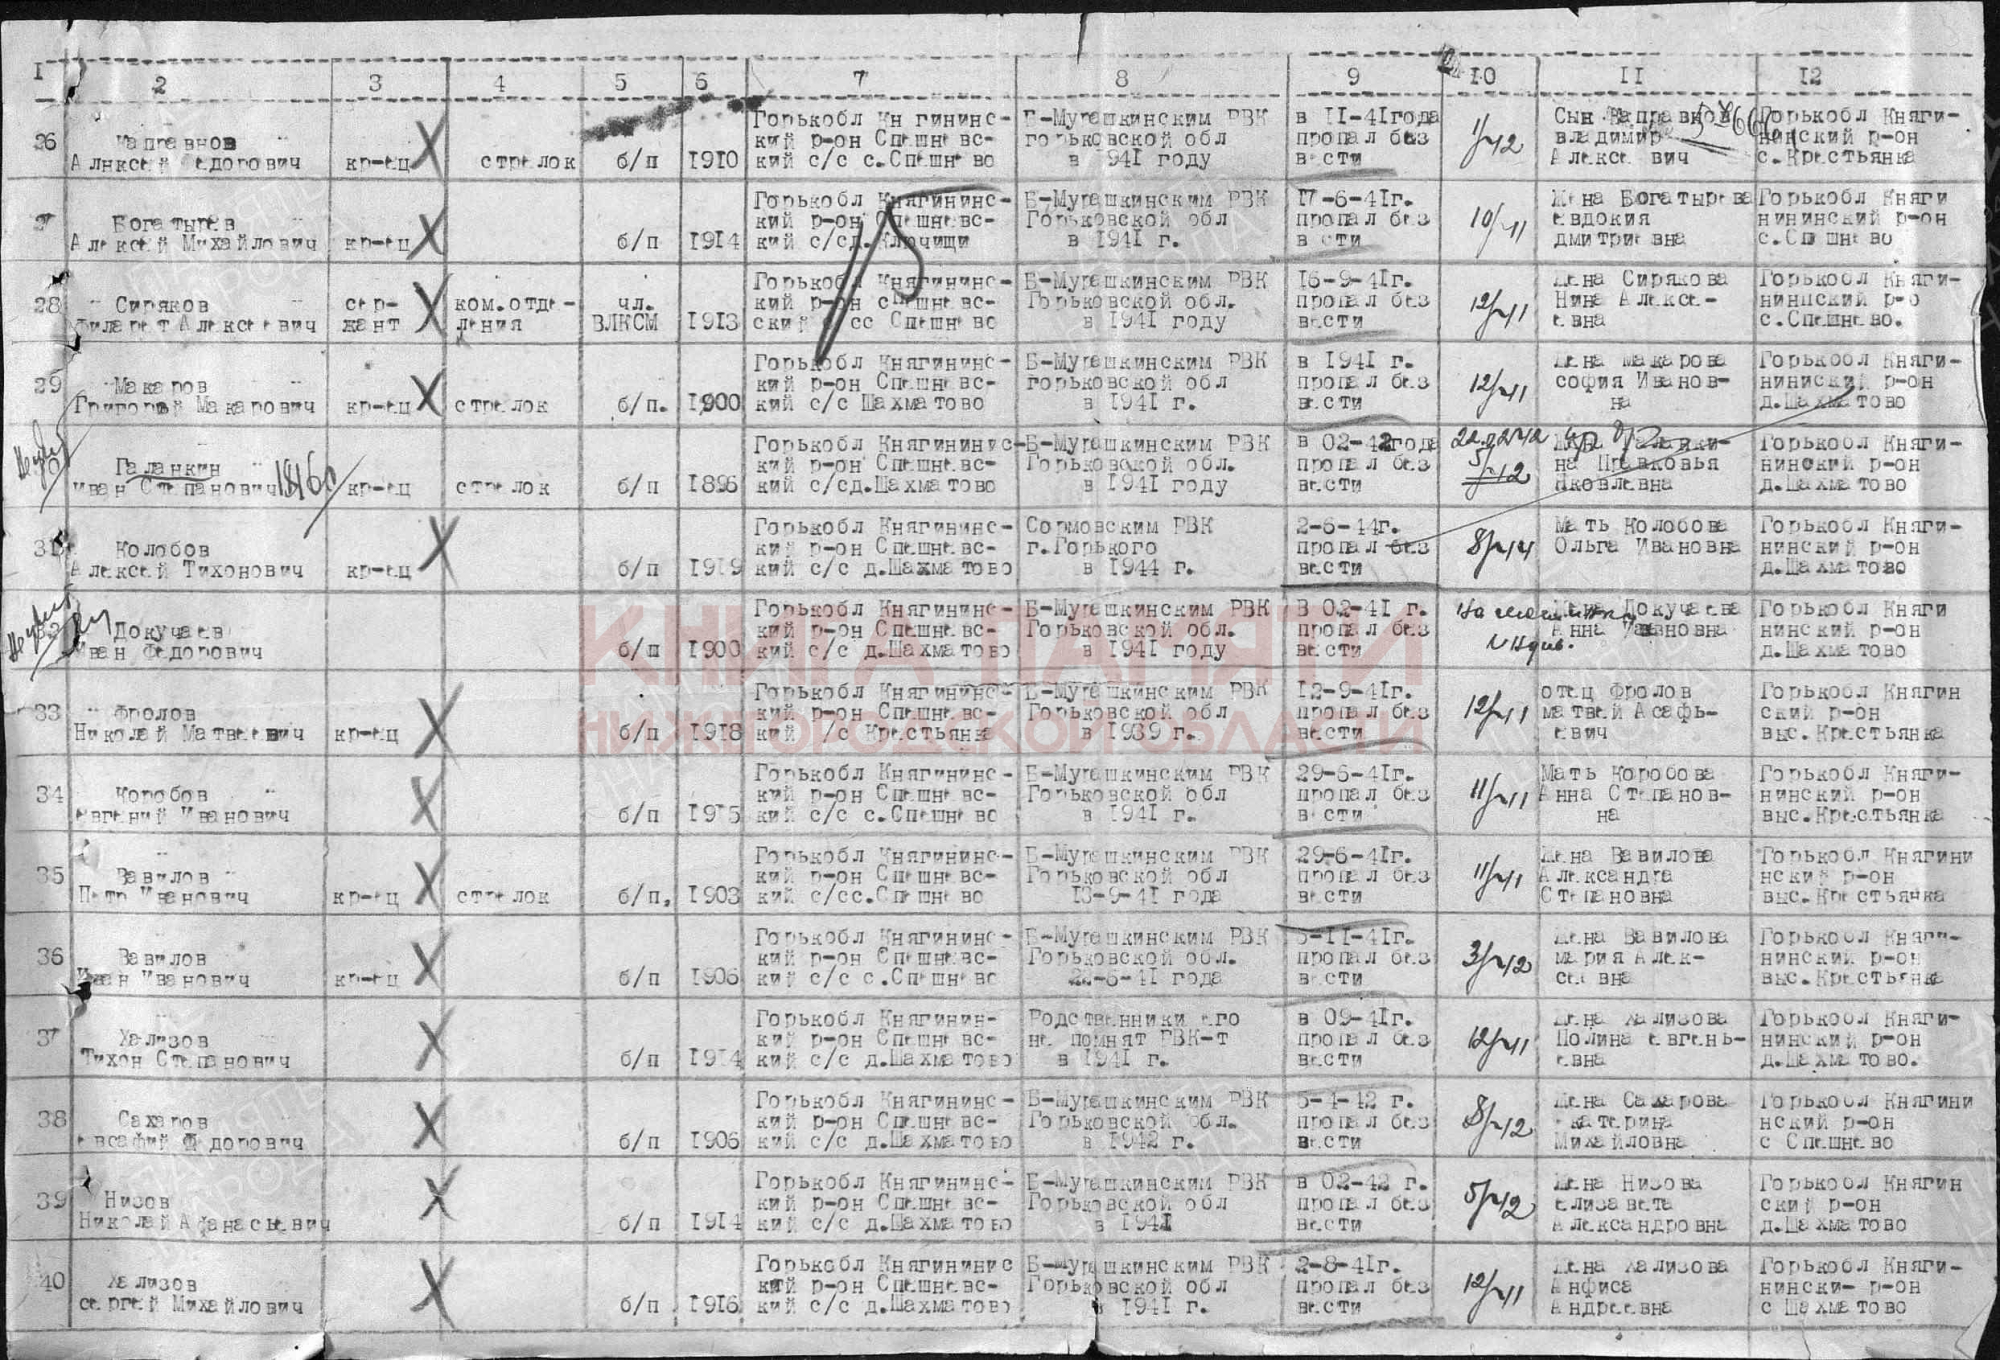 I 2 3 4 5 6 7 8 9 10 11 12
26 Направнов Алнксей Федорович кр-ец стрелок б/п 1910 Горькобл Кн гининс-кий р-он Спешневс-кий с/с с.Спешнево Б-Мурашкинским РВК горьковской обл в 1941 году в II-41года пропал без вести 1/у-12 Сын Направнов владимир Алексеевич Горькобл Княги-нинский р-он с.Крестьянка
27 Богатырев Алексей Михайлович кр-ец б/п 1914 Горькобл Княгининс-кий р-он Спешневс-кий с/сд.Ключищи Б-Мурашкинским РВК Горьковской обл в 1941 г. 17-6-41г. пропал без вести 10/у-11 Жена Богатырева евдокия дмитриевна Горькобл Княги нининский р-он с.Спешнево
28 Сиряков Филарет Алексеевич сер-жант ком.отде-ления чл. ВЛКСМ 1913 Горькобл Княгининс-кий р-он спешневс-ский с/сс Спешнево Б-Мурашкинским РВК Горьковской обл. в 1941 году 16-9-41г. пропал без вести 12/у-11 Жена Сирякова Нина Алексе-евна Горькобл Княги-нинпский р-о с.Спешнево.
29 Макаров Григорий Макарович кр-ец стрелок б/п. 1900 Горькобл Княгининс-кий р-он Спешневс-кий с/с Шахматово Б-Мурашкинским РВК горьковской обл в 1941 г. в 1941 г. пропал без вести 12/у-11 Жена макарова софия Иванов-на Горькобл Княги-нининский р-он д.Шахматово
Галанкин Иван Степанович 18460 кр-ец стрелок б/п 1896 Горькобл Княгининис-кий р-он Спешневс-кий с/сд.Шахматово Б-Мурашкинским РВК Горьковской обл. в 1941 году в 02-42года пропал без вести 5/у-12 Жена Галанки-на Прасковья Яковлевна Горькобл Княги-нинский р-он д.Шахматово
31 Колобов Алексей Тихонович кр-ец б/п 1919 Горькобл Княгининс-кий р-он Спешневс-кий с/с д.Шахматово Сормовским РВК г.Горького в 1944 г. 2-6-44г. пропал без вести 8/у-14 Мать Колобова Ольга Ивановна Горькобл Княги-нинский р-он д.Шахматово
32 Докучаев Иван Федорович б/п 1900 Горькобл Княгининс-кий р-он Спешневс-кий с/с д.Шахматово Б-Мурашкинским РВК Горьковской обл. в 1941 году В 02-41 г. пропал без вести Жена Докучаева Анна Ивановна Горькобл Княги нинский р-он д.Шахматово
33 Фролов Николай Матвеевич кр-ец б/п 1918 Горькобл Княгининс-кий р-он Спешневс-кий с/с Крестьянка Б-Мурашкинским РВК Горьковской обл в 1939 г. 12-9-41г. пропал без вести 12/у-11 отец Фролов матвей Асафь-евич Горькобл Княгин ский р-он выс.Крестьянка
34 Коробов евгений Иванович б/п 1915 Горькобл Княгининс-кий р-он Спешневс-кий с/с с.Спешнево Б-Мурашкинским РВК Горьковской обл в 1941 г. 29-6-41г. пропал без вести 11/у-11 Мать Коробова Анна Степанов-на Горькобл Княги-нинский р-он выс.Крестьянка
35 Вавилов Петр Иванович кр-ец стрелок б/п. 1903 Горькобл Княгининс-кий р-он Спешневс-кий с/сс.Спешнево Б-Мурашкинским РВК Горьковской обл 13-9-41 года 29-6-41г. пропал без вести 11/у-11 Жена Вавилова Александра Степановна Горькобл Княгини нский р-он выс.Крестьянка
36 Вавилов Иван Иванович кр-ец б/п 1906 Горькобл Княгининс-кий р-он Спешневс-кий с/с с.Спешнево Б-Мурашкинским РВК Горьковской обл. 22-6-41 года 5-II-41г. пропал без вести 3/у-12 Жена Вавилова мария Алек-сеевна Горькобл Княги-нинский р-он выс.Крестьянка
37 Хализов Тихон Степанович б/п 1914 Горькобл Княгинин-кий р-он Спешневс-кий с/с д.Шахматово Родственники его не помнят РВК-т в 1941 г. в 09-41г. пропал без вести 12/у-11 Жена Хализова Полина евгень-евна Горькобл Княги-нинский р-он д.Шахматово.
38 Сахаров евсафий Федорович б/п 1906 Горькобл Княгининс-кий р-он Спешневс-кий с/с д.Шахматово Б-Мурашкинским РВК Горьковской обл. в 1942 г. 5-4-42 г. пропал без вести 8/у-12 Жена Сахарова екатерина Михайловна Горькобл Княгини нский р-он с Спешнево
39 Низов Николай Афанасьевич б/п 1914 Горькобл Княгининс-кий р-он Спешневс-кий с/с д.Шахматово Б-Мурашкинским РВК Горьковской обл в 1941 в 02-42 г. пропал без вести 5/у-12 Жена Низова елизавета Александровна Горькобл Княгин ский р-он д.Шахматово
40 Хализов сергей Михайлович б/п 1916 Горькобл Княгининис кий р-он Спешневс-кий с/с д.Шахматово Б-Мурашкинским РВК Горьковской обл в 1941 г. 2-8-41г. пропал без вести 12/у-11 Жена Хализова Анфиса Андреевна Горькобл Княги-нински- р-он с Шахматово
КНИГА ПАМЯТИ
НИЖЕГОРОДСКОЙ ОБЛАСТИ